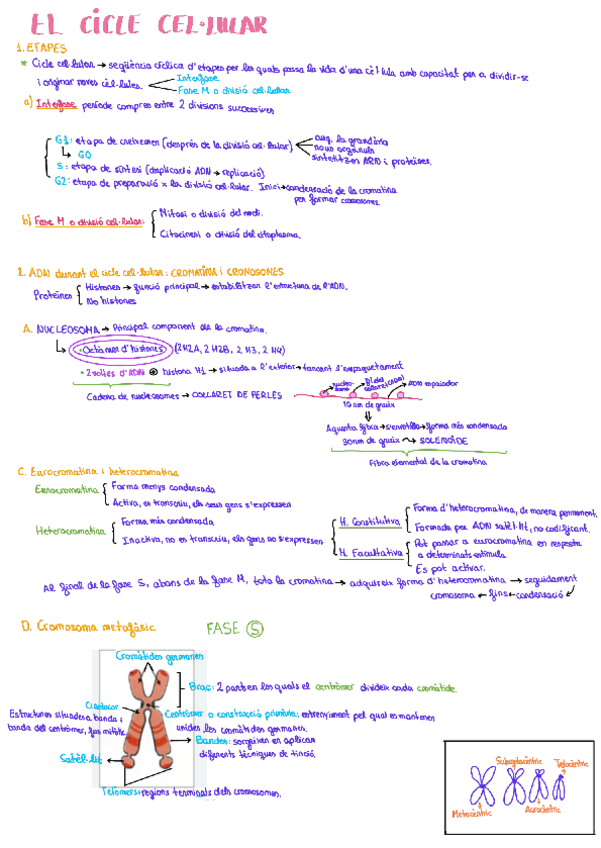 EL CICLE CEL·LULAR
1. ETAPES
* Cicle cel·lular → seqüència cíclica d'etapes per les quals passa la vida d'una cèl·lula amb capacitat per a dividir-se
i originar noves cèl·lules.
Interfase
Fase M o divisió cel·lular
a) Interfase període comprès entre 2 divisions successives
G1: etapa de creixement (després de la divisió cel·lular)
aug. la grandària
nous orgànuls
sintetitzen ARN i proteïnes.
↳ G0
S: etapa de síntesi (duplicació ADN → replicació)
G2: etapa de preparació x la divisió cel·lular. Inici → condensació de la cromatina
per formar cromosomes.
b) Fase M o divisió cel·lular:
Mitosi o divisió del nucli.
Citocinesi o divisió del citoplasma.
2. ADN durant el cicle cel·lular: CROMATINA i CROMOSOMES
Proteïnes
Histones → funció principal → estabilitzar l'estructura de l'ADN.
No histones
A. NUCLEOSOMA → Principal component de la cromatina.
↳ • Octàmer d'histones (2H2A, 2H2B, 2H3, 2H4)
• 2 voltes d'ADN ⊕ histona H1 → situada a l'exterior → tancant l'empaquetament
Cadena de nucleosomes → COLLARET DE PERLES
Nucleosoma
ADN espaiador
10 nm de gruix
Aquesta fibra → s'enrotlla → forma més condensada
30nm de gruix ↝ SOLENOIDE
Fibra elemental de la cromatina
C. Eurocromatina i heterocromatina
Eurocromatina
Forma menys condensada
Activa, es transcriu, els seus gens s'expressen
Heterocromatina
Forma més condensada
Inactiva, no es transcriu, els gens no s'expressen
H. Constitutiva
Forma d'heterocromatina, de manera permanent.
Formada per ADN satèl·lit, no codificant.
H. Facultativa
Pot passar a eurocromatina en resposta
a determinats estímuls.
Es pot activar.
Al final de la fase S, abans de la fase M, tota la cromatina → adquireix forma d'heterocromatina → seguidament
cromosoma ← fins ← condensació
D. Cromosoma metafàsic
FASE S
Cromàtides germanes
Braç: 2 parts en les quals el centròmer divideix cada cromàtide.
Cinetocor
Estructures situades a banda i
banda del centròmer, fus mitòtic
Centròmer o constricció primària: estrenyiment pel qual es mantenen
unides les cromàtides germanes.
Bandes: sorgeixen en aplicar
diferents tècniques de tinció.
Satèl·lit
Telòmers: regions terminals dels cromosomes.
Submetacèntric
Telocèntric
Metacèntric
Acrocèntric